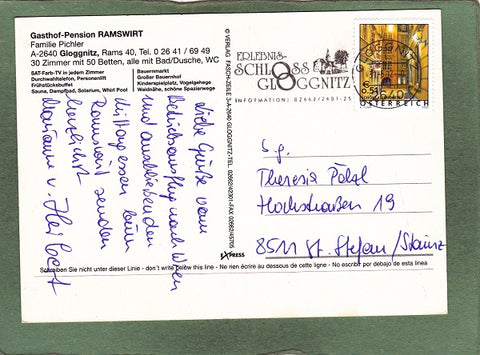 Gasthof-Pension RAMSWIRT
Familie Pichler
A-2640 Gloggnitz, Rams 40, Tel. 0 26 41 / 69 49
30 Zimmer mit 50 Betten, alle mit Bad/Dusche, WC
SAT-Farb-TV in jedem Zimmer
Durchwahltelefon, Personenlift
Frühstücksbuffet
Sauna, Dampfbad, Solarium, Whirl Pool
Bauernmarkt
Großer Bauernhof
Kinderspielplatz, Vogelgehege
Waldnähe, schöne Spazierwege
Liebe Grüße vom
Betriebsausflug nach Wien
und anschließenden
Mittagessen beim
Ramswirt senden
herzlichst
Marianne u. Herbert
© VERLAG FASCH-ZEILE 3-A-2640 GLOGGNITZ-TEL. 02662/42301-FAX 02662/43705
EXPRESS
ERLEBNIS-
SCHLOSS
GLOGGNITZ
INFORMATION: 02662/2401-25
GLOGGNITZ
2640
ÖSTERREICH
S.g.
Theresia Pölzl
Hochstraßen 19
8511 St. Stefan/Stainz
Schreiben Sie nicht unter dieser Linie - don't write below this line - Ne rien écrire au dessous de cette ligne - No escribir por debajo de esta linea